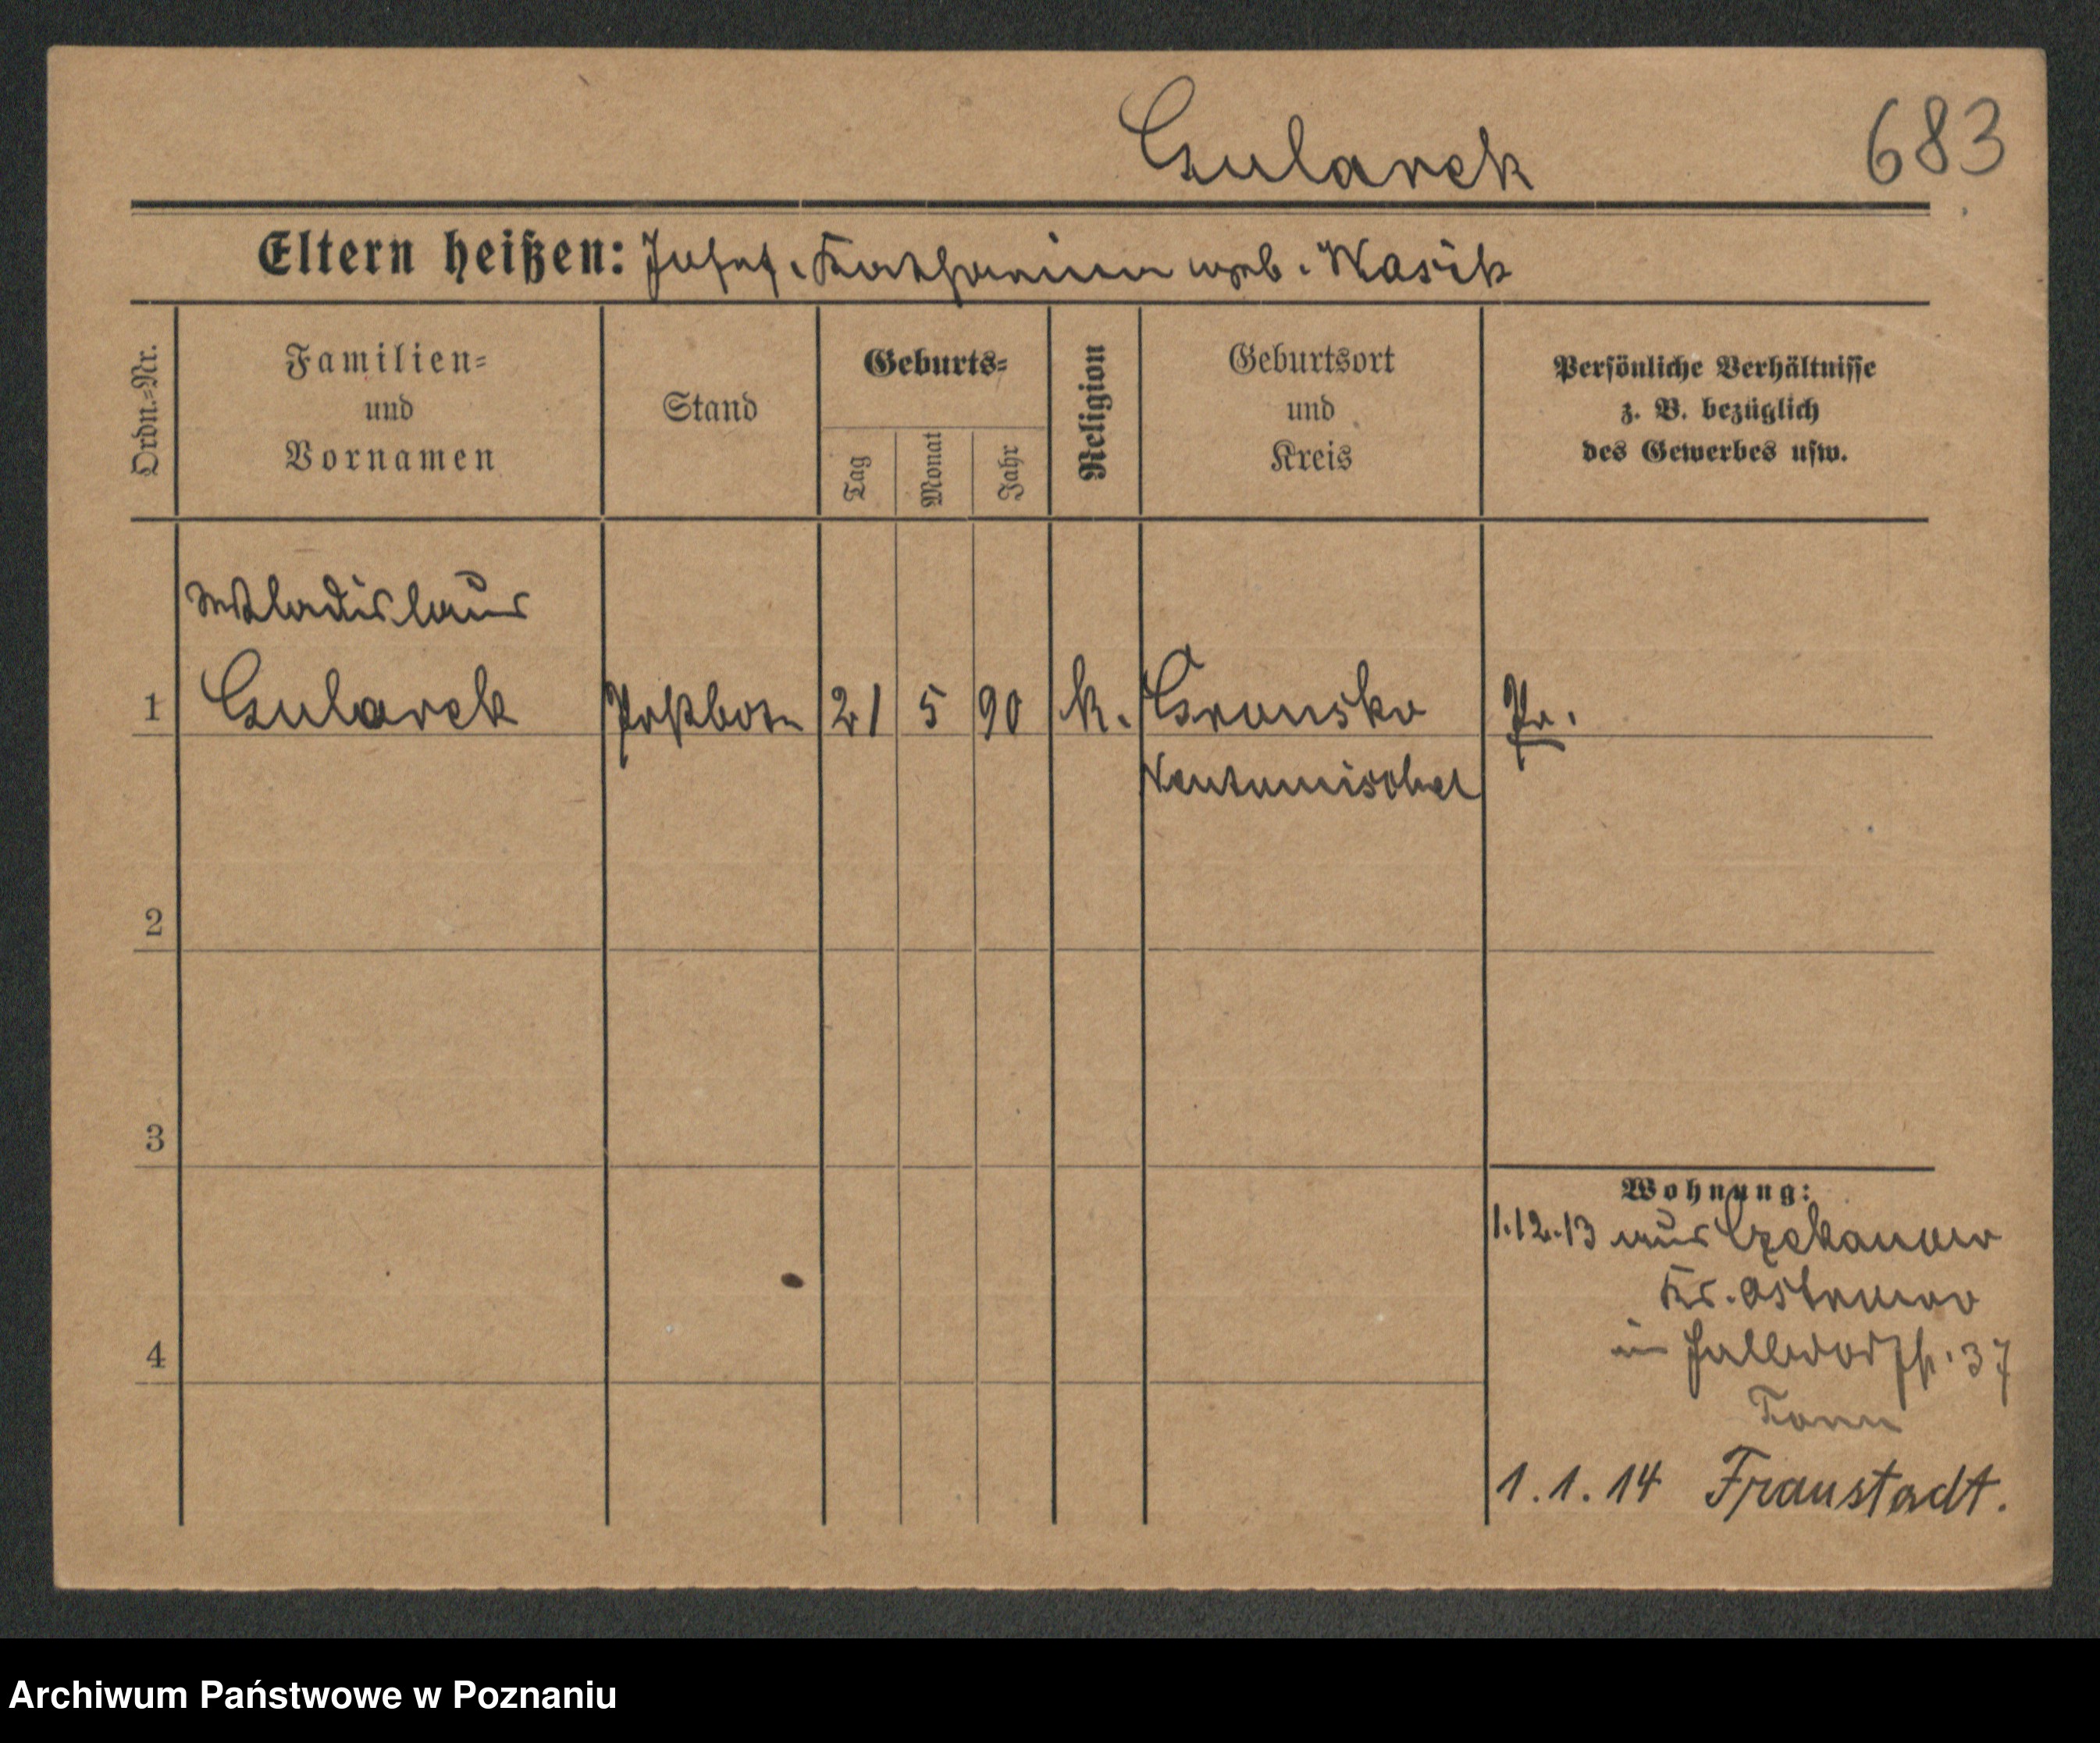 Gularek
683
Eltern heißen: Josef. Katharina geb. Wasik
Ordn.-Nr.
Familien-
und
Vornamen
Stand
Geburts-
Tag
Monat
Jahr
Religion
Geburtsort
und
Kreis
Persönliche Verhältnisse
z. B. bezüglich
des Gewerbes usw.
Wladislaus
1 Gularek Postbote 21 5 90 k. Gronsko Pr.
Neutomischel
2
3
4
Wohnung:
1.12.13 aus Czekanow
Kr. Ostrowo
in 37
1.1.14 Fraustadt.
Archiwum Państwowe w Poznaniu